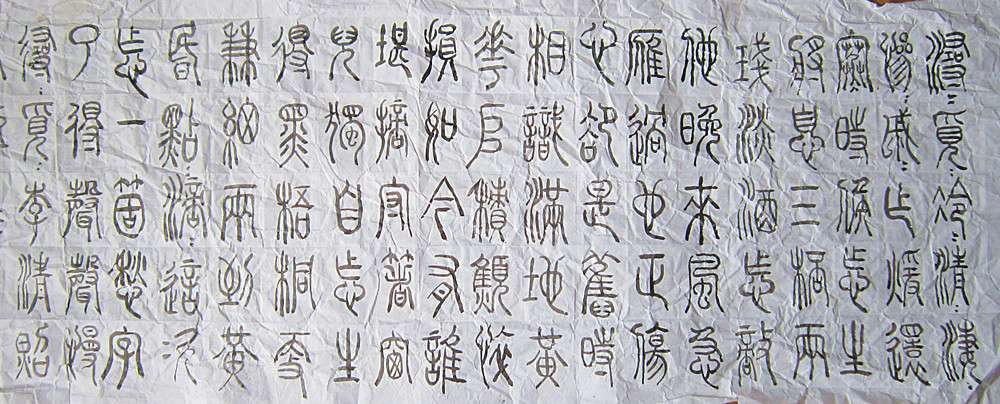 尋:覓:冷:清:淒:
慘:戚:乍煖還
寒時候怎生
將息三桮兩
琖淡酒怎敵
他晚來風急
雁過也正傷
心卻是舊時
相識滿地黃
花𠂤積顦悴
損如今有誰
堪摘守著窗
兒獨自怎生
得黑梧桐更
兼細雨到黃
昏點滴:這次
怎一箇愁字
了得聲聲慢
尋:覓:李清照